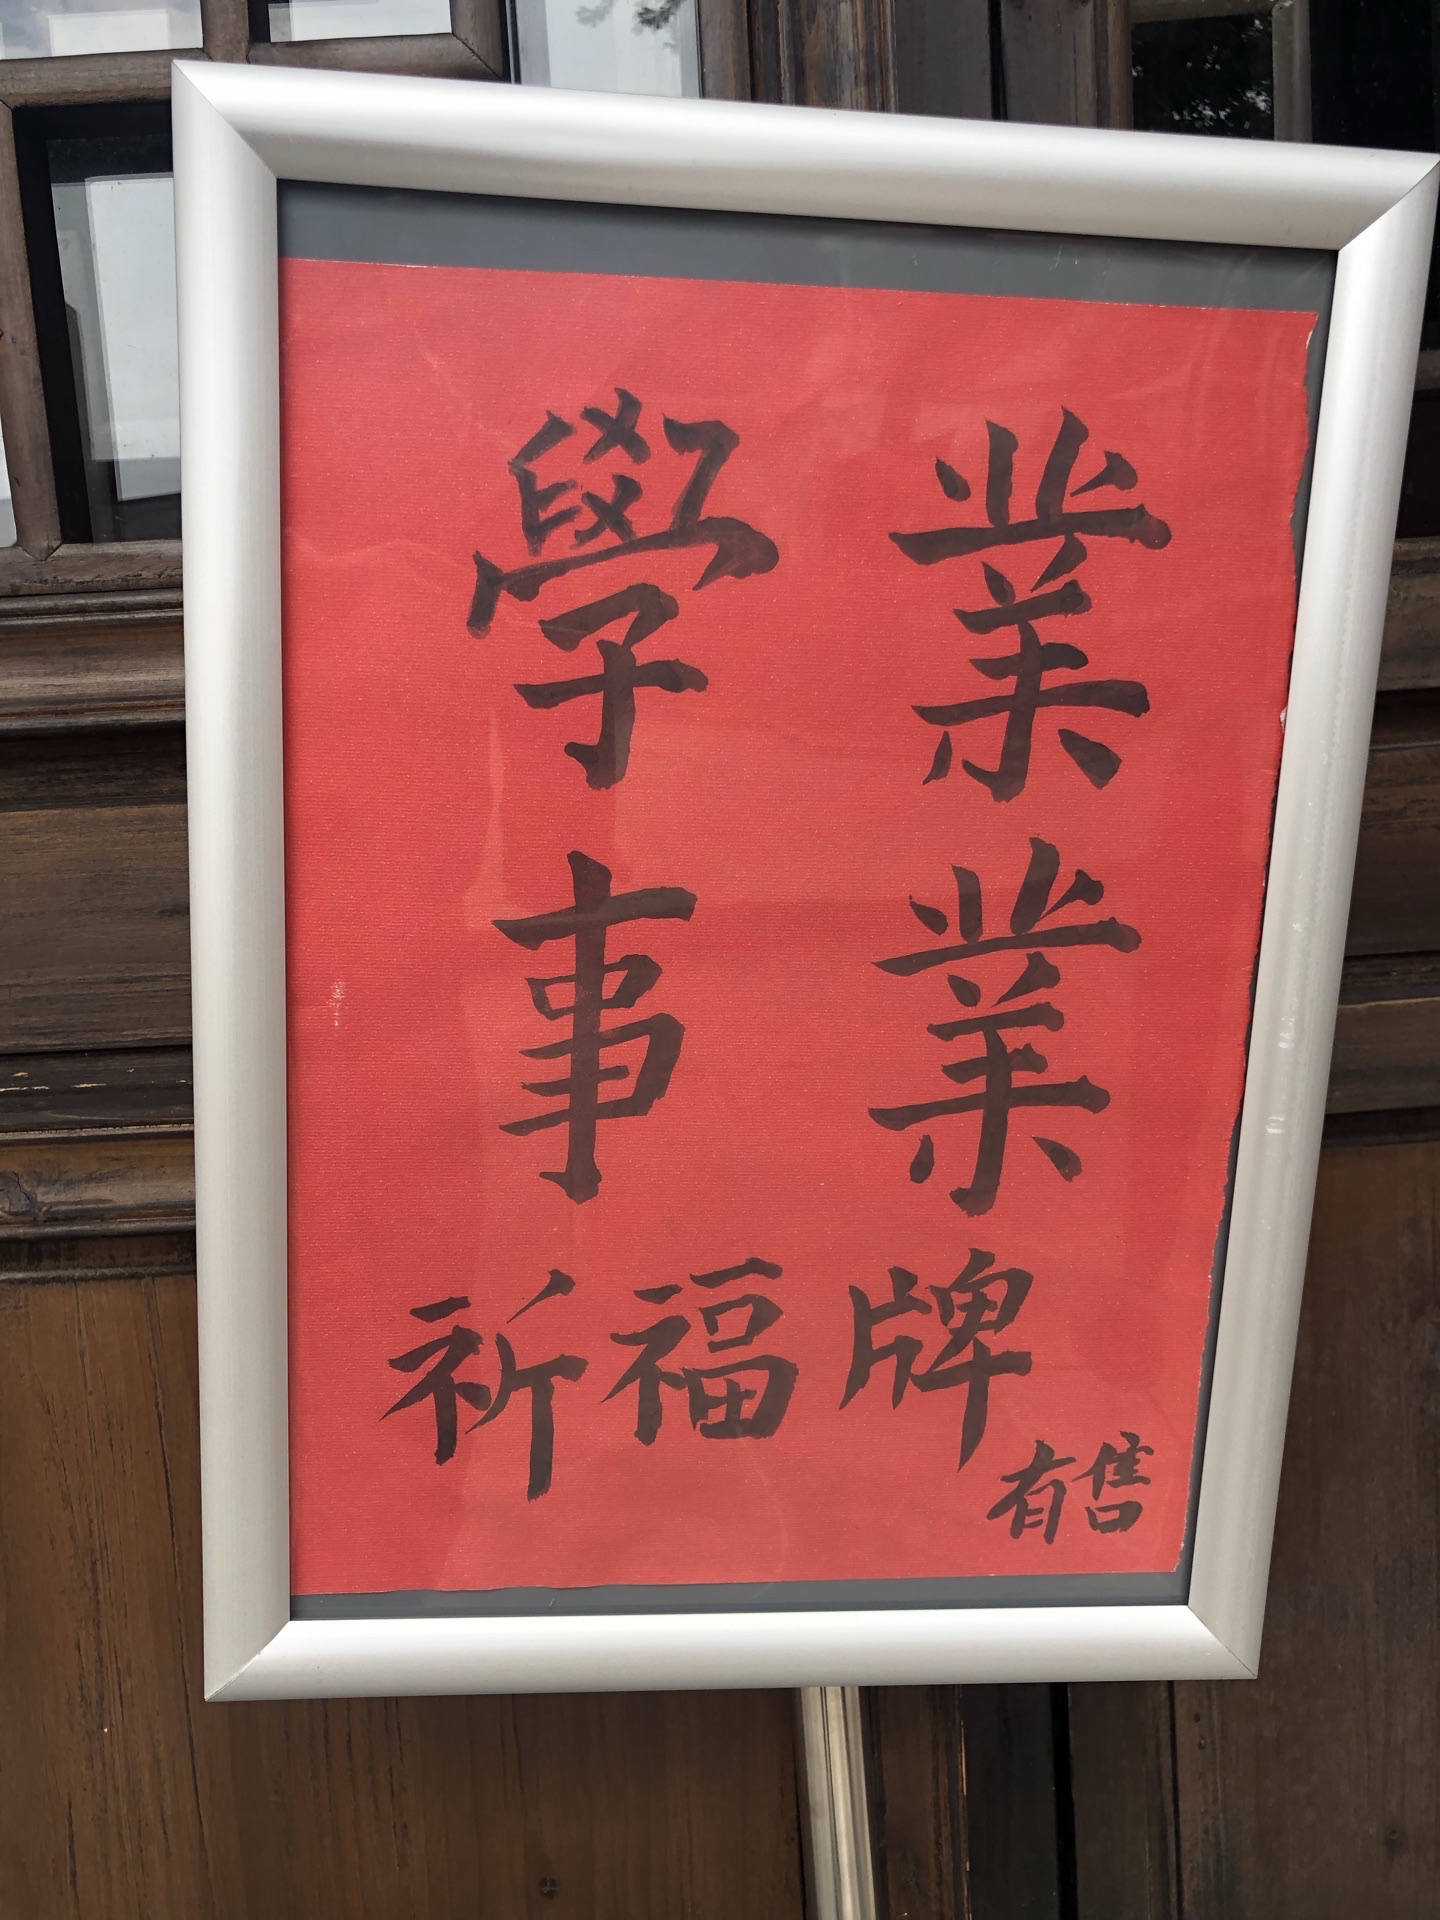 學業
事業
祈福牌
有售